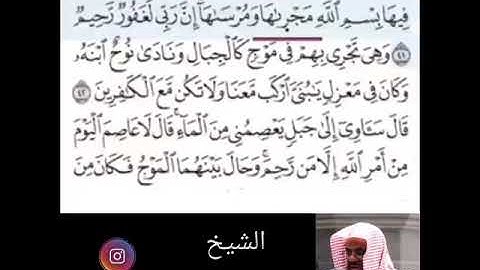 فِيهَا بِسْمِ ٱللَّهِ مَجْر۪ىٰهَا وَمُرْسَىٰهَآ إِنَّ رَبِّى لَغَفُورٌ رَّحِيمٌ
٤١ وَهِىَ تَجْرِى بِهِمْ فِى مَوْجٍ كَٱلْجِبَالِ وَنَادَىٰ نُوحٌ ٱبْنَهُۥ
وَكَانَ فِى مَعْزِلٍ يَٰبُنَىَّ ٱرْكَب مَّعَنَا وَلَا تَكُن مَّعَ ٱلْكَٰفِرِينَ ٤٢
قَالَ سَـَٔاوِىٓ إِلَىٰ جَبَلٍ يَعْصِمُنِى مِنَ ٱلْمَآءِ ۚ قَالَ لَا عَاصِمَ ٱلْيَوْمَ
مِنْ أَمْرِ ٱللَّهِ إِلَّا مَن رَّحِمَ ۚ وَحَالَ بَيْنَهُمَا ٱلْمَوْجُ فَكَانَ مِنَ
الشيخ